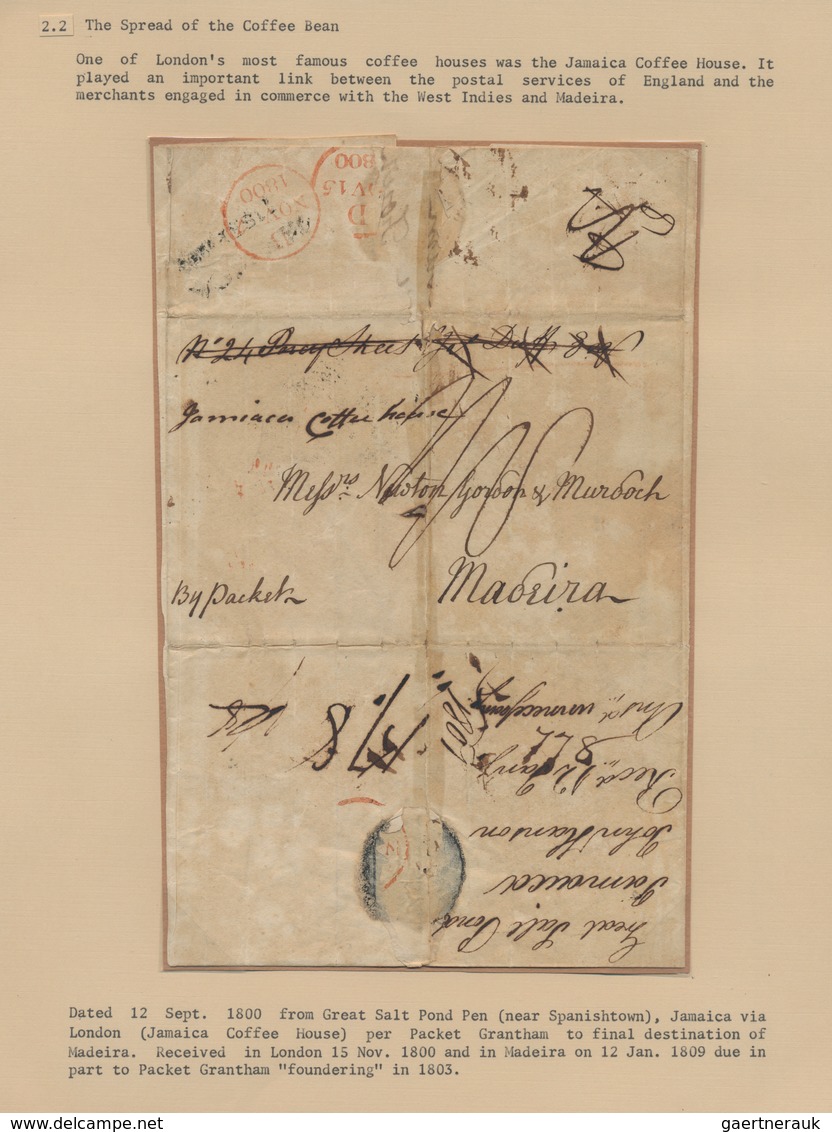 2.2 The Spread of the Coffee Bean
One of London's most famous coffee houses was the Jamaica Coffee House. It
played an important link between the postal services of England and the
merchants engaged in commerce with the West Indies and Madeira.
D
NOV 15
1800
NOV
1800
No 24 Percy Street
Jamiaca Coffee house
Messrs. Newton Gordon & Murdoch
By Packet
Madeira
Great Salt Pond
Jamaica
John Hanson
Recd. 12 Jany
1801
Dated 12 Sept. 1800 from Great Salt Pond Pen (near Spanishtown), Jamaica via
London (Jamaica Coffee House) per Packet Grantham to final destination of
Madeira. Received in London 15 Nov. 1800 and in Madeira on 12 Jan. 1809 due in
part to Packet Grantham "foundering" in 1803.
gaertnerauk